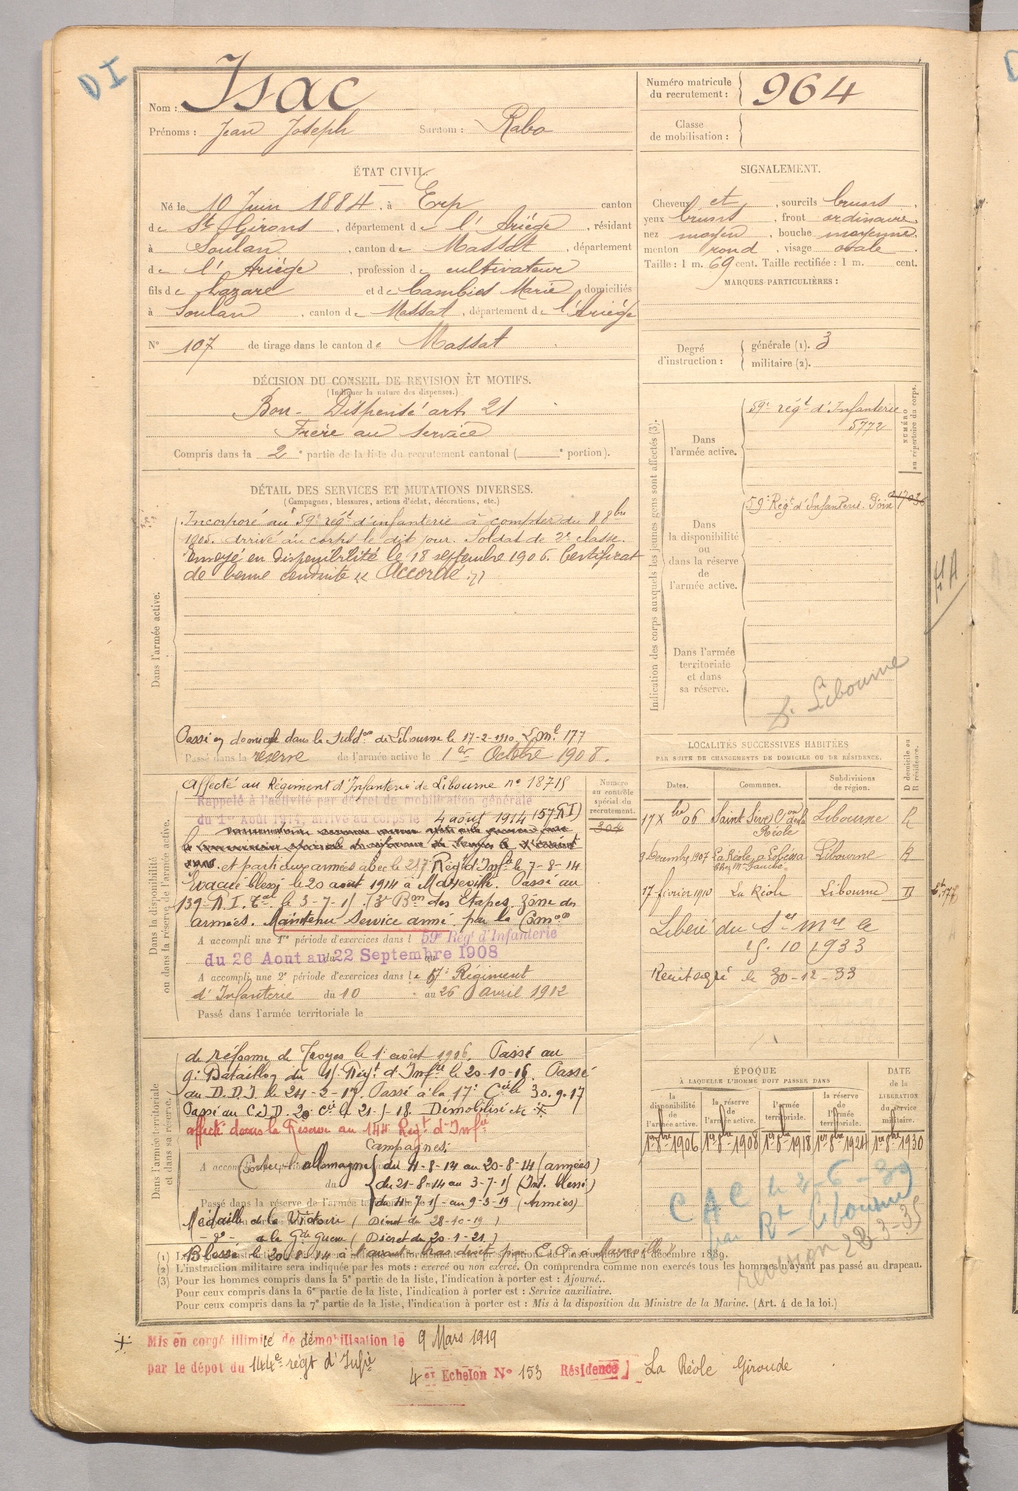 DI
Nom : Isac
Prénoms : Jean Joseph Surnom : Rabo
Numéro matricule du recrutement : 964
Classe de mobilisation :
ÉTAT CIVIL.
Né le 10 Juin 1884, à Erp canton
de St Girons, département de l'Ariège, résidant
à Soulan, canton de Massat, département
de l'Ariège, profession de cultivateur
fils de Lazare et de Cambies Marie domiciliés
à Soulan, canton de Massat, département de l'Ariège
N° 107 de tirage dans le canton de Massat
SIGNALEMENT.
Cheveux et, sourcils bruns,
yeux bruns, front ordinaire,
nez moyen, bouche moyenne,
menton rond, visage ovale
Taille : 1 m. 69 cent. Taille rectifiée : 1 m. cent.
MARQUES PARTICULIÈRES :
Degré d'instruction : générale (1). 3
militaire (2).
DÉCISION DU CONSEIL DE REVISION ET MOTIFS.
(Indiquer la nature des dispenses.)
Bon - Dispensé art. 21
Frère au service
Compris dans la 2e partie de la liste du recrutement cantonal ( e portion).
DÉTAIL DES SERVICES ET MUTATIONS DIVERSES.
(Campagnes, blessures, actions d'éclat, décorations, etc.)
Dans l'armée active.
Incorporé au 59e régt d'infanterie à compter du 8 8bre
1905. Arrivé au corps le dit jour. Soldat de 2e classe.
Envoyé en disponibilité le 18 septembre 1906. Certificat
de bonne conduite "Accordé".
Passé en domicile dans la Subdon de Libourne le 17-2-1910.
Passé dans la réserve de l'armée active le 1er Octobre 1908.
Indication des corps auxquels les jeunes gens sont affectés (3).
NUMÉRO au répertoire du corps.
Dans l'armée active.
59e régt d'Infanterie
5772
Dans la disponibilité ou dans la réserve de l'armée active.
59e Régt d'Infanterie Foix
Dans l'armée territoriale et dans sa réserve.
Libourne
Dans la disponibilité ou dans la réserve de l'armée active.
Affecté au Régiment d'Infanterie de Libourne n° 18715
Rappelé à l'activité par décret de mobilisation générale
du 1er Août 1914, arrivé au corps le 4 août 1914 (57e RI)
et parti aux armées avec le 217e Régt d'Infie le 7-8-14
Evacué blessé le 20 août 1914 à Passé au
139e R.I.T. le 3-7-15 des Etapes. Zone des
armées. Maintenu service armé par la Comon
A accompli une 1re période d'exercices dans le 59e Régt d'Infanterie
du 26 Aout au 22 Septembre 1908
A accompli une 2e période d'exercices dans le Régiment
d'Infanterie du 10 au 26 Avril 1912
Passé dans l'armée territoriale le
Numéro au contrôle spécial du recrutement.
LOCALITÉS SUCCESSIVES HABITÉES
PAR SUITE DE CHANGEMENTS DE DOMICILE OU DE RÉSIDENCE.
Dates. Communes. Subdivisions de région. D domicile ou R résidence.
17 Xbre 06 Libourne R
9 Décembre 1907 La Réole Libourne R
17 février 1910 La Réole Libourne D
Libéré du Sce Mre le
15-10 1933
le 30-12-33
Dans l'armée territoriale et dans sa réserve.
de réforme de Troyes le 1er août 1916. Passé au
9e Bataillon du Régt d'Infie le 20-10-16. Passé
au D.D.I. le 24-2-17. Passé à la 17e Cie le 30-9-17
Démobilisé etc
affecté dans la Réserve au 144 Régt d'Infie
Campagnes:
Contre l'allemagne du 4-8-14 au 20-8-14 (armées)
du 21-8-14 au 3-7-15 (Int. blessé)
du 4-7-15 au 9-3-19 (Armées)
Passé dans la réserve de l'armée territoriale le
Médaille de la Victoire (Décret du 28-10-19)
Blessé le 20-8-14 à l'avant bras droit par E.O.
ÉPOQUE
À LAQUELLE L'HOMME DOIT PASSER DANS
DATE de la LIBÉRATION du service militaire.
la disponibilité de l'armée active. la réserve de l'armée active. l'armée territoriale. la réserve de l'armée territoriale.
1er 8bre 1906 1er 8bre 1908 1er 8bre 1918 1er 8bre 1924 1er 8bre 1930
Libourne
(2) L'instruction militaire sera indiquée par les mots : exercé ou non exercé. On comprendra comme non exercés tous les hommes n'ayant pas passé au drapeau.
(3) Pour les hommes compris dans la 5e partie de la liste, l'indication à porter est : Ajourné..
Pour ceux compris dans la 6e partie de la liste, l'indication à porter est : Service auxiliaire.
Pour ceux compris dans la 7e partie de la liste, l'indication à porter est : Mis à la disposition du Ministre de la Marine. (Art. 4 de la loi.)
Mis en congé illimité de démobilisation le 9 Mars 1919
par le dépot du 144e régt d'Infie 4er Echelon N° 153 Résidence La Réole Gironde